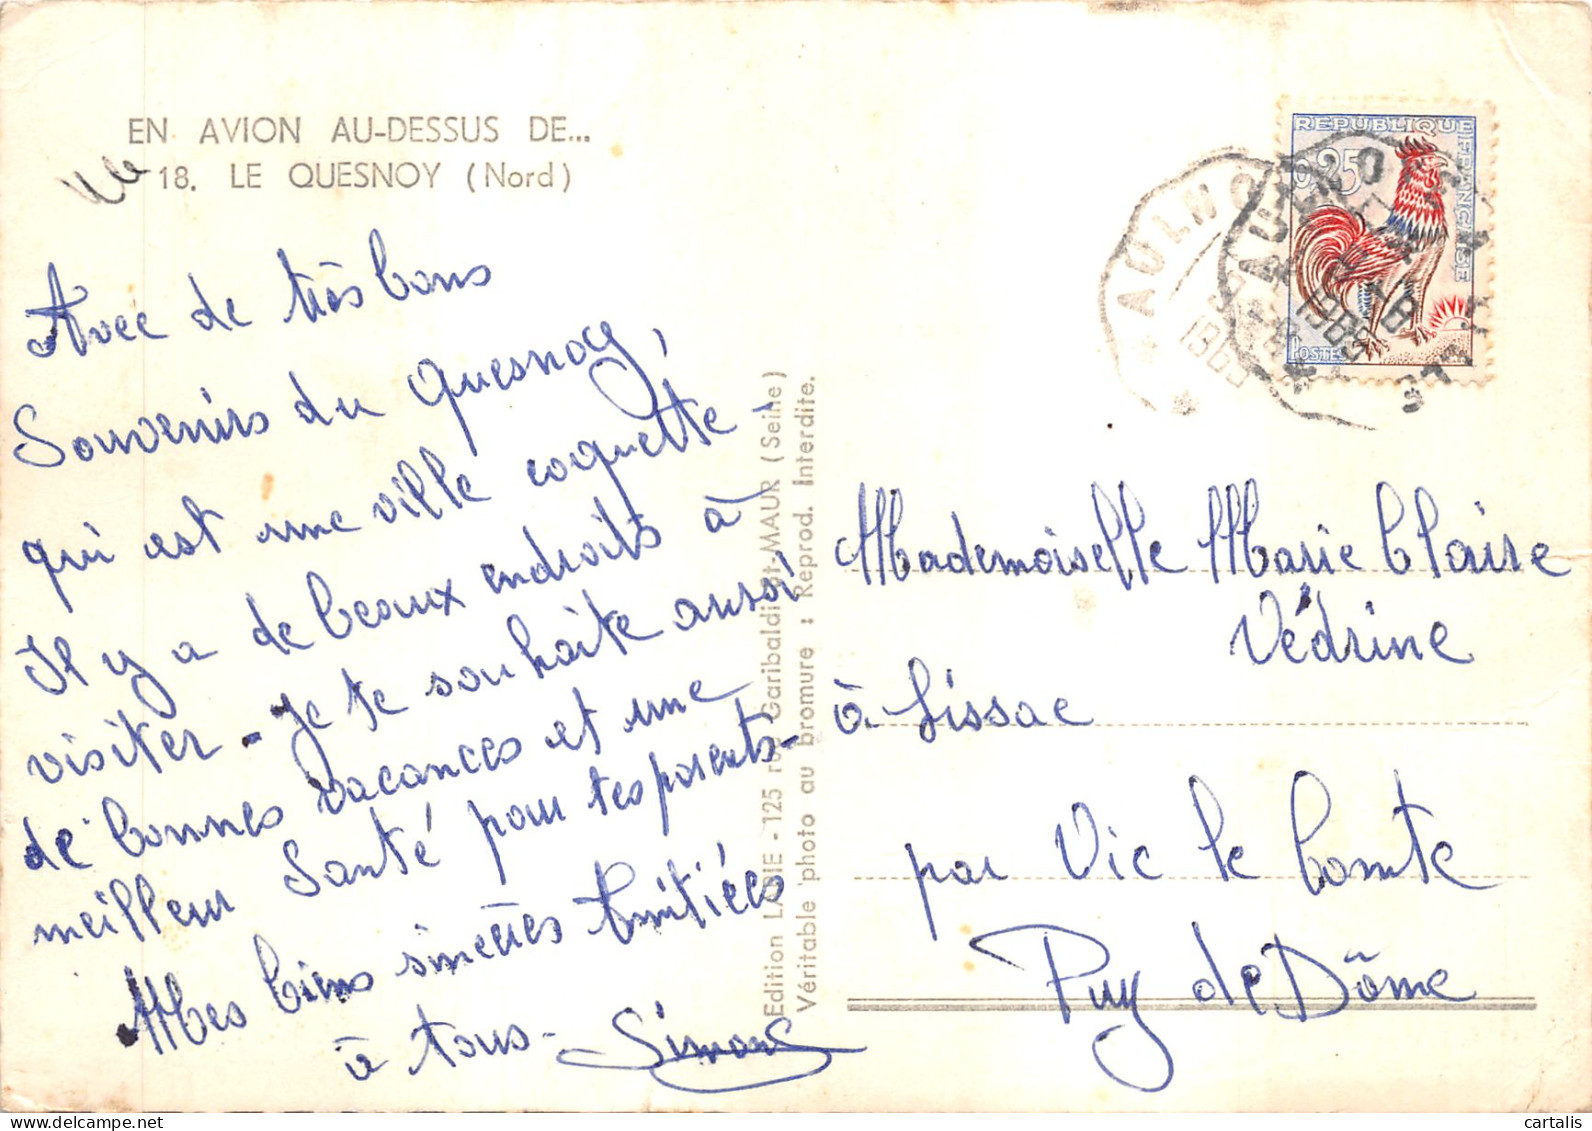 EN AVION AU-DESSUS DE...
18. LE QUESNOY (Nord)
Avec de très bons
Souvenirs du Quesnoy,
qui est une ville coquette -
Il y a de beaux endroits à
visiter - Je te souhaite aussi
de bonnes vacances et une
meilleur Santé pour tes parents -
Mes biens sincères Amitiées
à tous - Simone
Edition LAPIE - 125 rue Garibaldi St-MAUR (Seine)
Véritable photo au bromure : Reprod. Interdite.
REPUBLIQUE FRANÇAISE
0,25
POSTES
AULNO
1965
AULNO
1965
18
Mademoiselle Marie Claire
Védrine
à Sissac
par Vic le Comte
Puy de Dôme
cartalis
delcampe.net